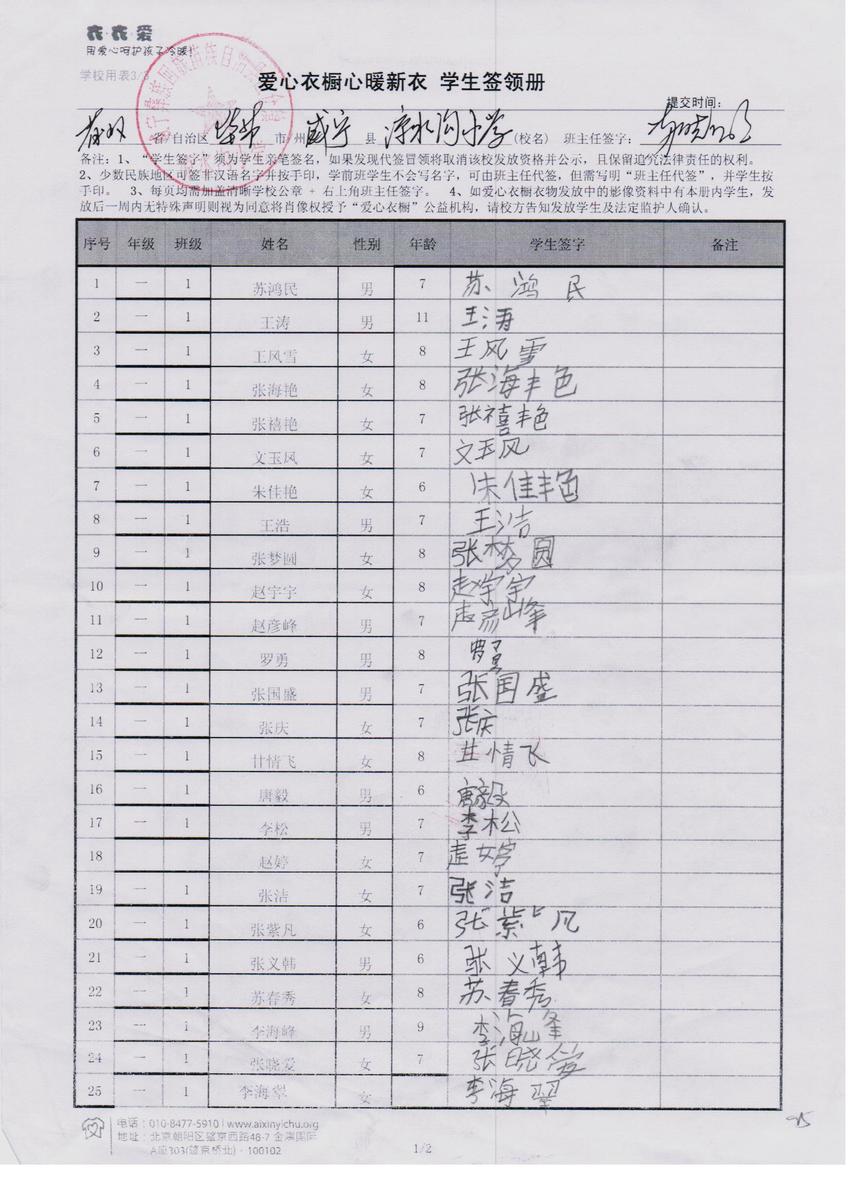 衣·衣·爱
用爱心呵护孩子冷暖!
学校用表3/3
爱心衣橱心暖新衣 学生签领册
提交时间:
贵州 省/自治区 毕节 市/州 威宁 县 凉水沟小学 (校名) 班主任签字:
备注:1、“学生签字”须为学生亲笔签名,如果发现代签冒领将取消该校发放资格并公示,且保留追究法律责任的权利。
2、少数民族地区可签非汉语名字并按手印,学前班学生不会写名字,可由班主任代签,但需写明“班主任代签”,并学生按
手印。 3、每页均需加盖清晰学校公章 + 右上角班主任签字。 4、如爱心衣橱衣物发放中的影像资料中有本册内学生,发
放后一周内无特殊声明则视为同意将肖像权授予“爱心衣橱”公益机构,请校方告知发放学生及法定监护人确认。
序号 年级 班级 姓名 性别 年龄 学生签字 备注
1 一 1 苏鸿民 男 7 苏鸿民
2 一 1 王涛 男 11 王涛
3 一 1 王风雪 女 8 王风雪
4 一 1 张海艳 女 8 张海艳
5 一 1 张禧艳 女 7 张禧艳
6 一 1 文玉凤 女 7 文玉风
7 一 1 朱佳艳 女 6 朱佳艳
8 一 1 王浩 男 7 王浩
9 一 1 张梦圆 女 8 张梦圆
10 一 1 赵宇宇 女 8 赵宇宇
11 一 1 赵彦峰 男 7 赵彦峰
12 一 1 罗勇 男 8 罗勇
13 一 1 张国盛 男 7 张国盛
14 一 1 张庆 女 7 张庆
15 一 1 甘情飞 女 8 甘情飞
16 一 1 唐毅 男 6 唐毅
17 一 1 李松 男 7 李松
18 赵婷 女 7 赵婷
19 一 1 张洁 女 7 张洁
20 一 1 张紫凡 女 6 张紫凡
21 一 1 张义韩 男 6 张义韩
22 一 1 苏春秀 女 8 苏春秀
23 一 1 李海峰 男 9 李海峰
24 一 1 张晓爱 女 7 张晓爱
25 一 1 李海翠 女 李海翠
电话:010-8477-5910 | www.aixinyichu.org
地址:北京朝阳区望京西路48-7 金隅国际
A座303(望京桥北)· 100102
1/2